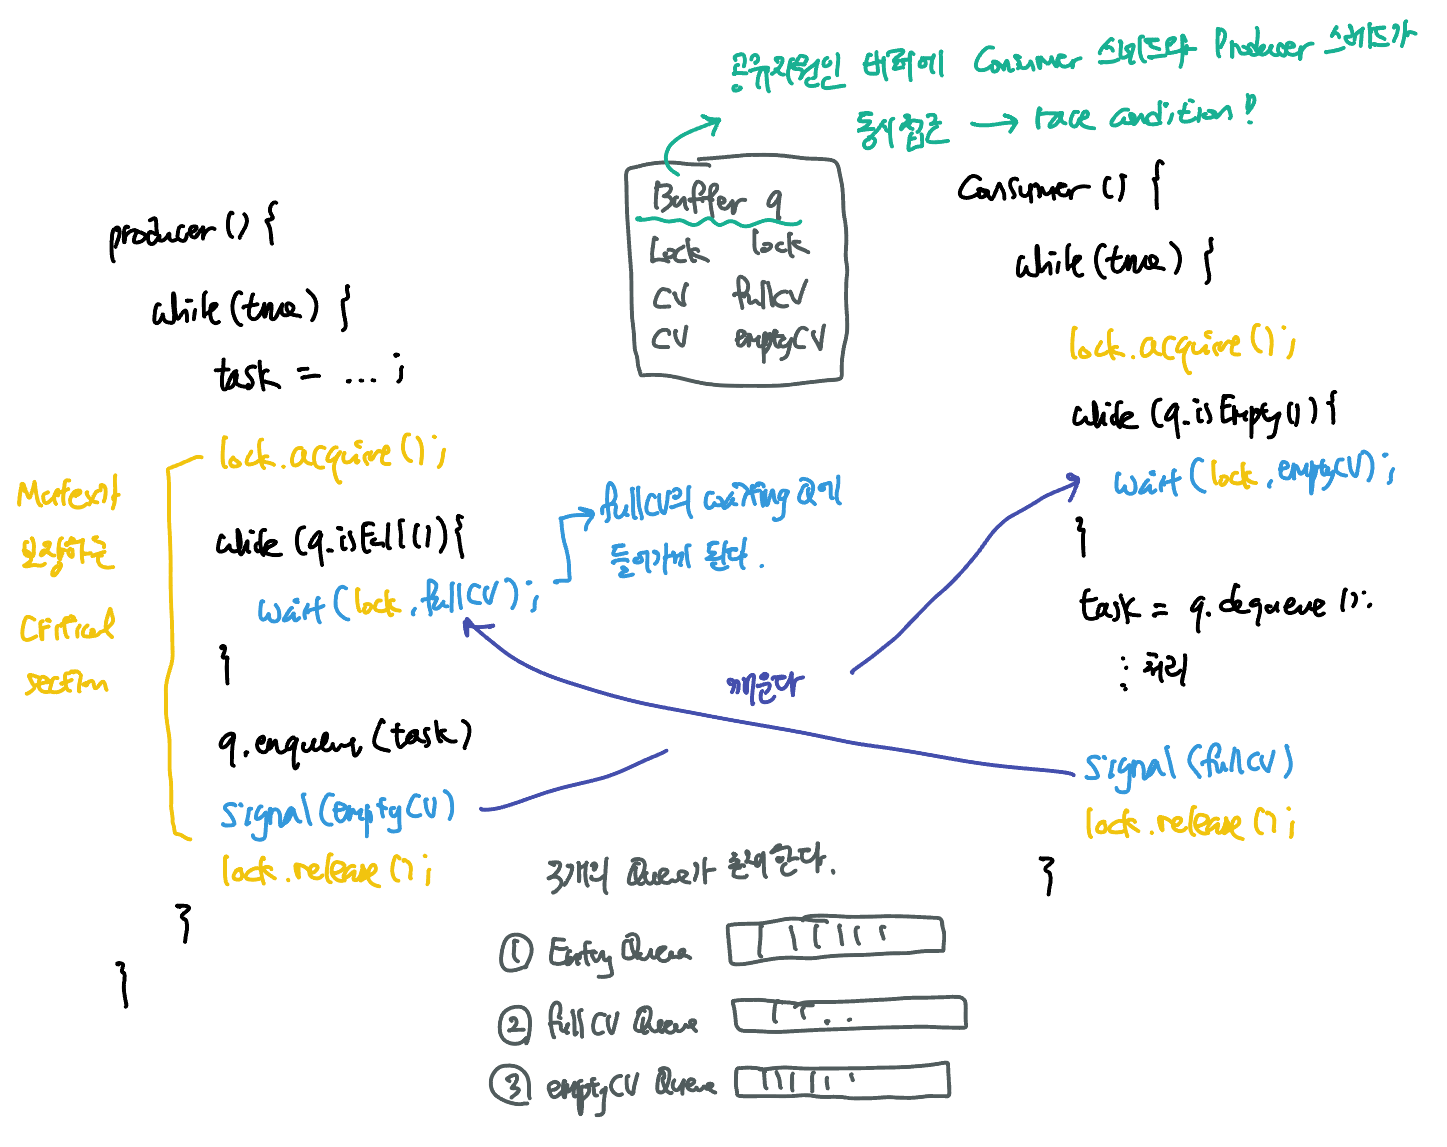 공유자원인 버퍼에 Consumer 스레드와 Producer 스레드가
동시접근 → race condition!
Buffer q
Lock lock
CV fullCV
CV emptyCV
producer() {
while(true) {
task = ... ;
lock.acquire();
while (q.isFull()){
wait(lock, fullCV);
}
q.enqueue(task)
signal(emptyCV)
lock.release();
}
}
Mutex가
보장하는
Critical
section
fullCV의 waiting Q에
들어가게 된다.
깨운다
Consumer() {
while(true) {
lock.acquire();
while (q.isEmpty()){
wait(lock, emptyCV);
}
task = q.dequeue();
: 처리
signal(fullCV)
lock.release();
}
3개의 Queue가 존재한다.
① Entry Queue
② fullCV Queue
③ emptyCV Queue